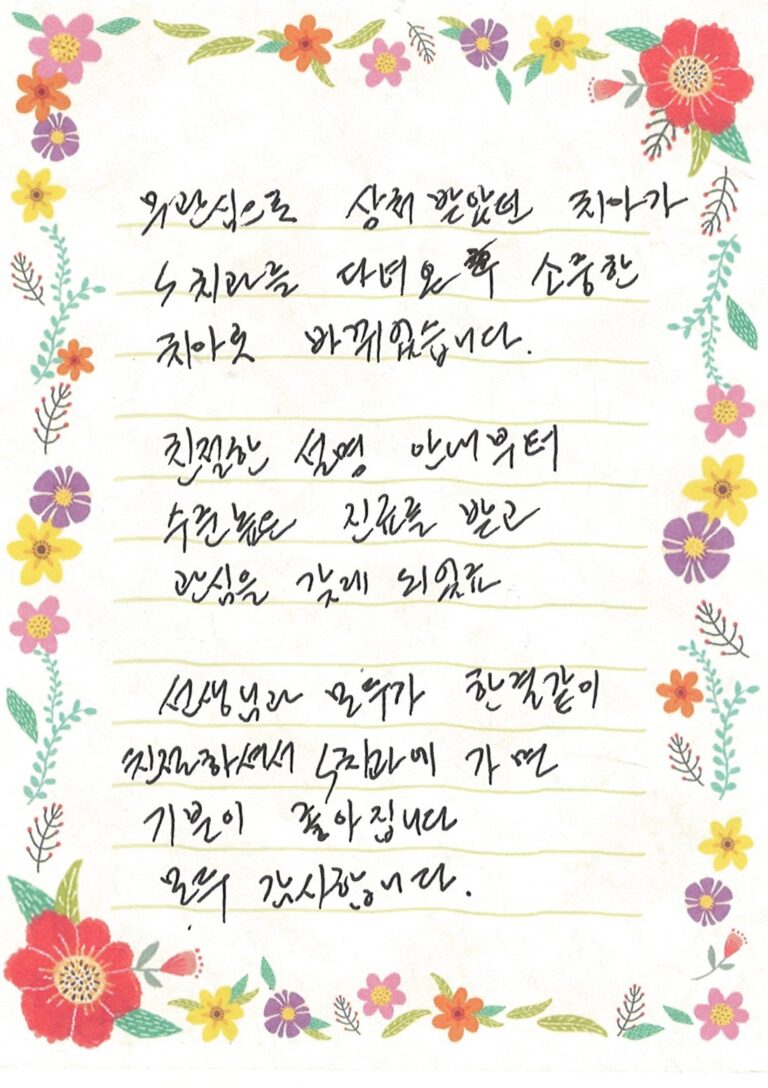 무관심으로 상처 받았던 치아가
S치과를 다녀온 후 소중한
치아로 바뀌었습니다.
친절한 설명 안내부터
수준높은 진료를 받고
관심을 갖게 되었고
선생님과 모두가 한결같이
친절하셔서 S치과에 가면
기분이 좋아집니다
모두 감사합니다.